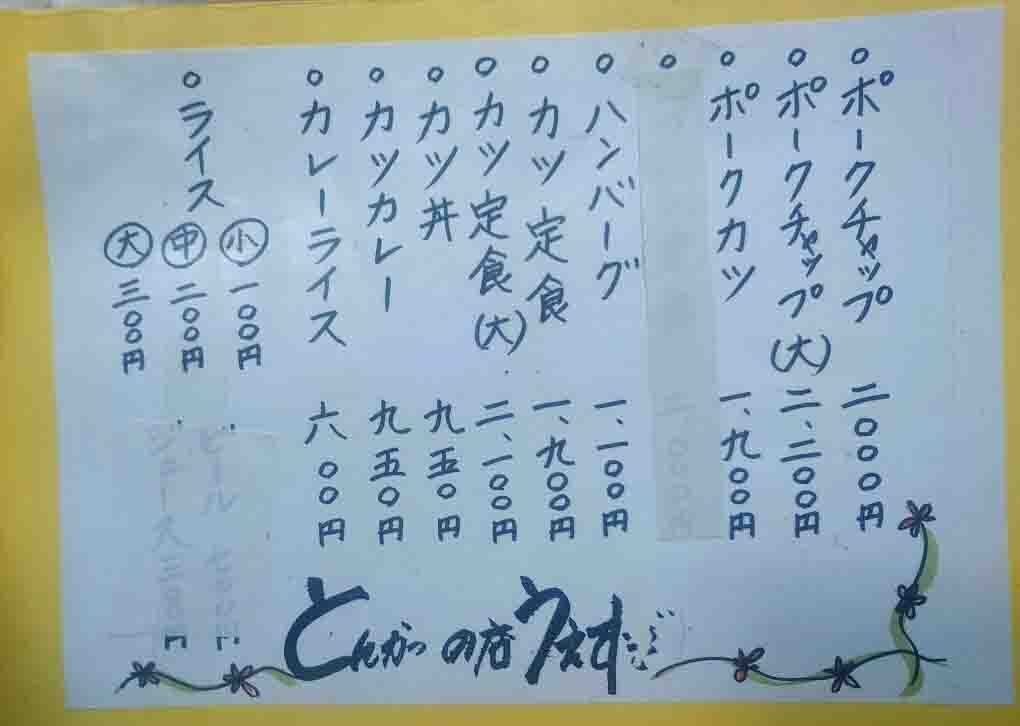 ○ポークチャップ 二〇〇〇円
○ポークチャップ(大) 二、二〇〇円
○ポークカツ 一、九〇〇円
○
○ハンバーグ 一、一〇〇円
○カツ定食 一、九〇〇円
○カツ定食(大) 二、一〇〇円
○カツ丼 九五〇円
○カツカレー 九五〇円
○カレーライス 六〇〇円
○ライス
小 一〇〇円
中 二〇〇円
大 三〇〇円
とんかつの店うえすと